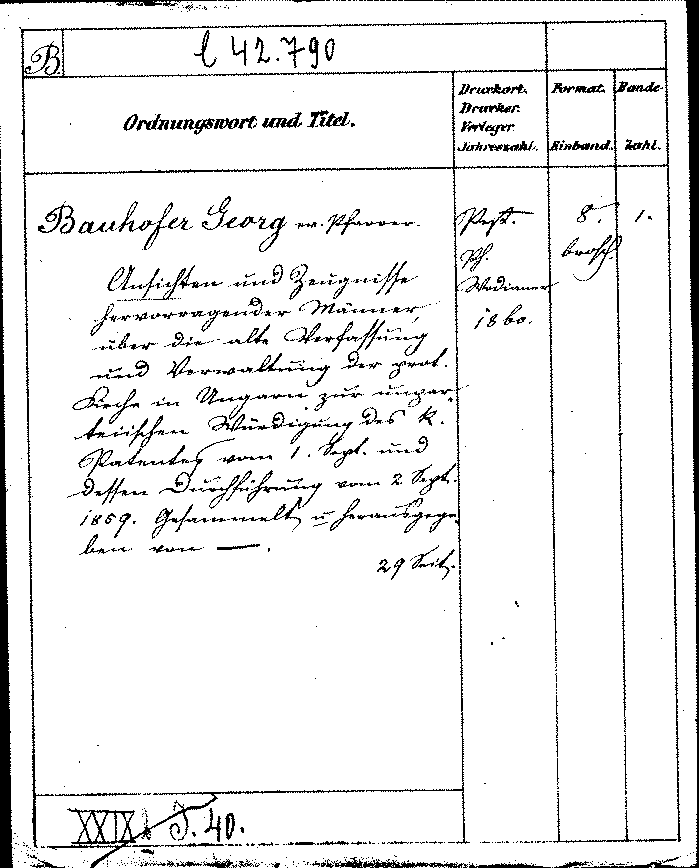 B
l 42.790
Ordnungswort und Titel.
Druckort.
Drucker.
Verleger.
Jahreszahl.
Format.
Einband.
Bände-
zahl.
Bauhofer Georg ev. Pfarrer.
Ansichten und Zeugnisse
hervorragender Männer,
über die alte Verfassung
und Verwaltung der prot.
Kirche in Ungarn zur unpar-
teiischen Würdigung des k.
Patentes vom 1. Sept. und
dessen Durchführung vom 2 Sept.
1859. Gesammelt u herausgege-
ben von —.
29 Seit.
Pest.
Ph.
Wodianer
1860.
8.
brosch.
1.
XXIX J. 40.